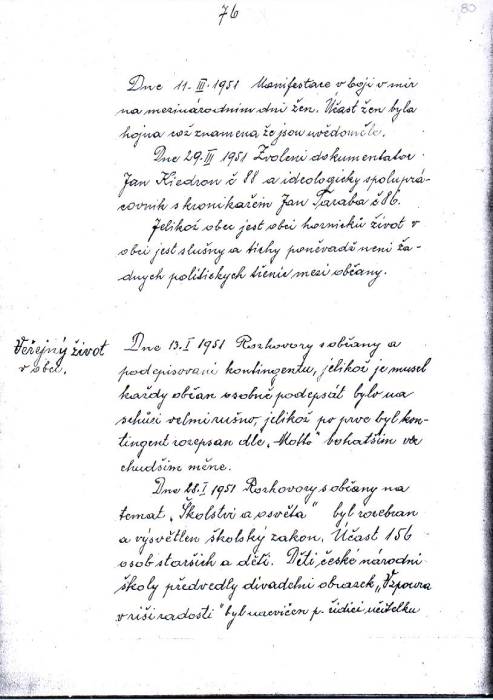 76
80
Dne 11. III. 1951 Manifestace v boji v mir
na mezinárodním dni žen. Učast žen byla
hojna což znamena, že jsou uvědoměle.
Dne 29. III 1951 Zvoleni dokumentator
Jan Kiedron č 88 a ideologicky spoluprá-
covnik s kronikařem Jan Taraba č 86.
Jelikož obec jest obci hornicků život v
obci jest slušny a tichy poněvadž neni ža-
dnych politickych třenic mezi občany.
Veřejný život
v obci.
Dne 13. I 1951 Rozhovory s občany a
podepisovani kontingentu, jelikož je musel
každy občan osobně podepsat bylo na
schůzi velmi rušno, jelikož po prve byl kon-
tingent rozepsan dle „Motto" bohatšim vic
chudšim méne.
Dne 28. I 1951 Rozhovory s občany na
temat „Školstvi a osvěta" byl rozebran
a výsvětlen školský zakon. Účast 156
osob starších a děti. Děti české národni
školy předvedly divadelni obrazek „Vzpoura
v řiši radosti" byl nacvičen p. řidici učitelku